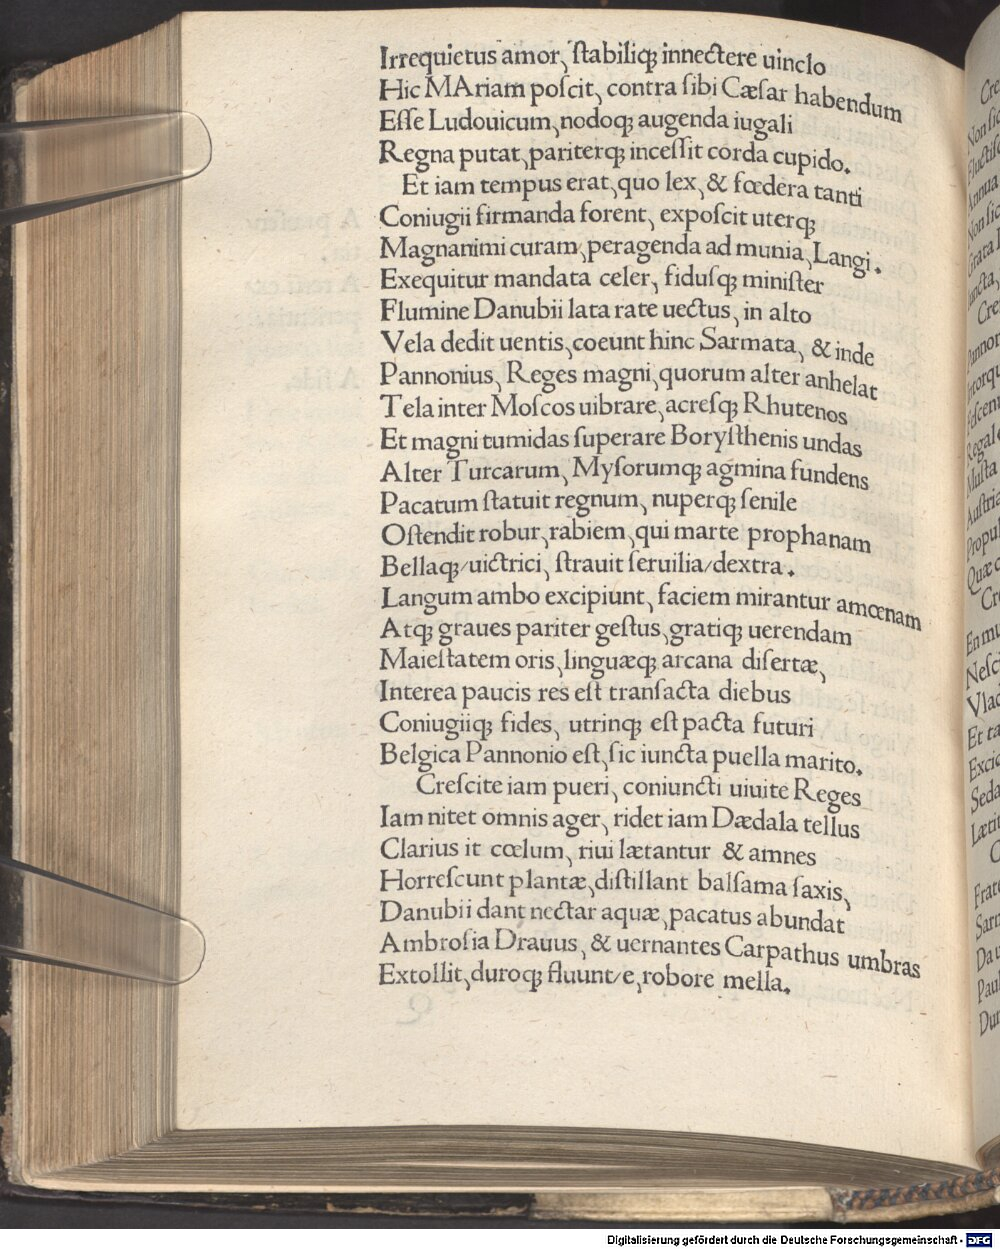 Irrequietus amor, ſtabiliq; innectere uinclo
Hic MAriam poſcit, contra ſibi Cæſar habendum
Eſſe Ludouicum, nodoq; augenda iugali
Regna putat, pariterq; inceſſit corda cupido.
Et iam tempus erat, quo lex, & fœdera tanti
Coniugii firmanda forent, expoſcit uterq;
Magnanimi curam, peragenda ad munia, Langi.
Exequitur mandata celer, fiduſq; miniſter
Flumine Danubii lata rate uectus, in alto
Vela dedit uentis, coeunt hinc Sarmata, & inde
Pannonius, Reges magni, quorum alter anhelat
Tela inter Moſcos uibrare, acreſq; Rhutenos
Et magni tumidas ſuperare Boryſthenis undas
Alter Turcarum, Myſorumq; agmina fundens
Pacatum ſtatuit regnum, nuperq; ſenile
Oſtendit robur, rabiem, qui marte prophanam
Bellaq; uictrici, ſtrauit ſeruilia/dextra.
Langum ambo excipiunt, faciem mirantur amœnam
Atq; graues pariter geſtus, gratiq; uerendam
Maieſtatem oris, linguæq; arcana diſertæ,
Interea paucis res eſt tranſacta diebus
Coniugiiq; fides, utrinq; eſt pacta futuri
Belgica Pannonio eſt, ſic iuncta puella marito.
Creſcite iam pueri, coniuncti uiuite Reges
Iam nitet omnis ager, ridet iam Dædala tellus
Clarius it cœlum, riui lætantur & amnes
Horreſcunt plantæ, diſtillant balſama ſaxis,
Danubii dant nectar aquæ, pacatus abundat
Ambroſia Drauus, & uernantes Carpathus umbras
Extollit, duroq; fluunt/e, robore mella.
Digitalisierung gefördert durch die Deutsche Forschungsgemeinschaft - DFG